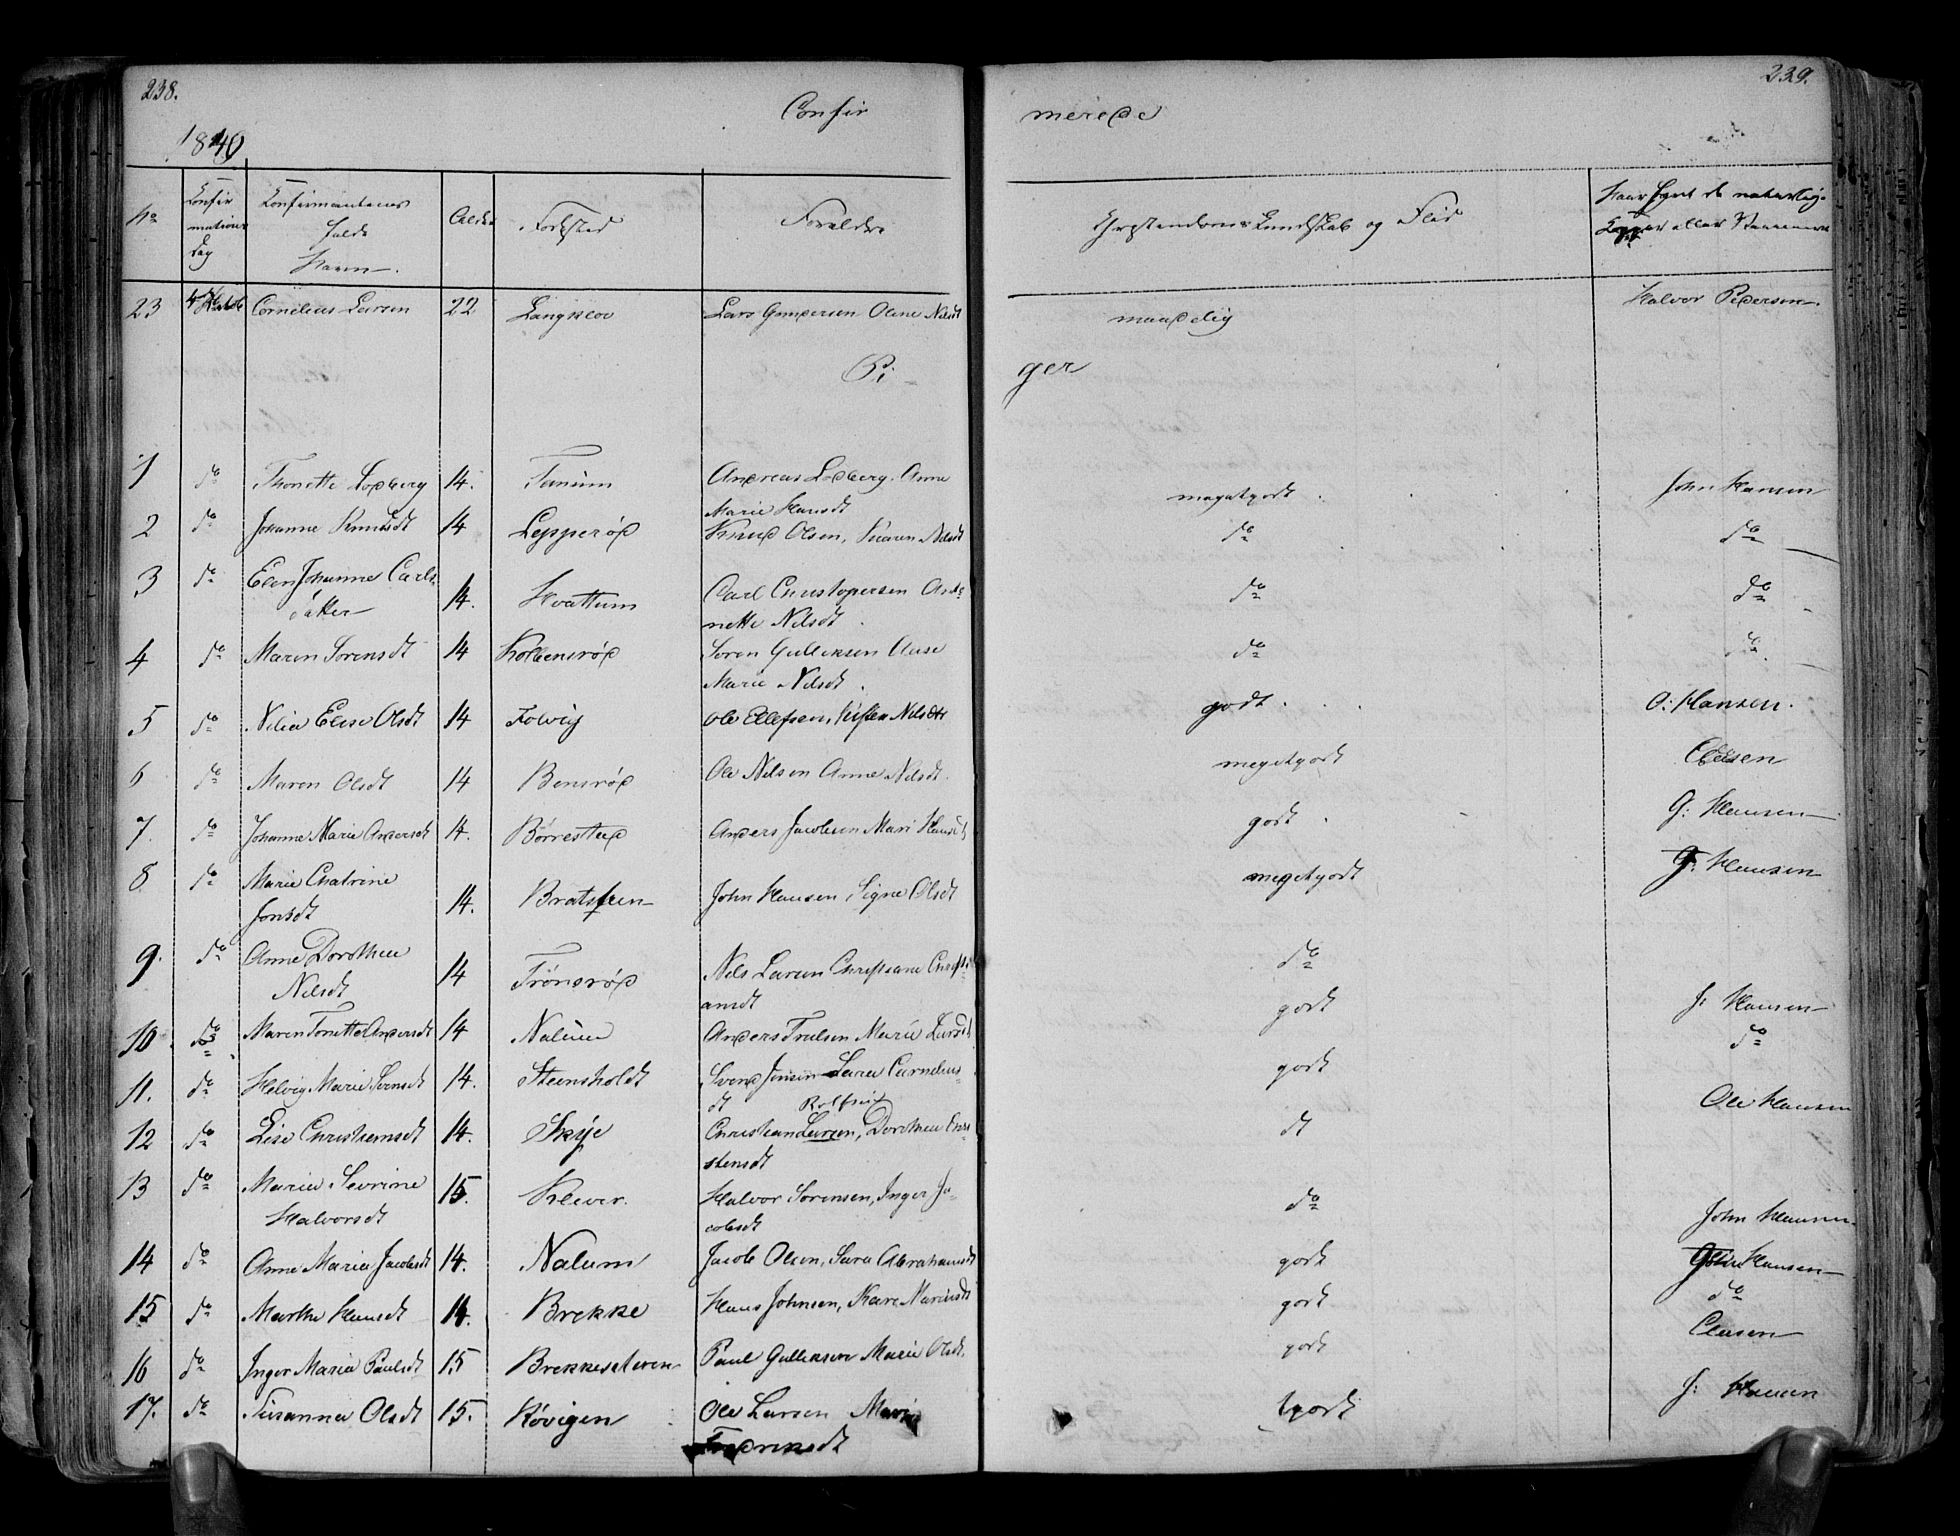 238.
239.
Confir
merede
1840
No
Confir
mations
dag
Confirmandenes
fulde
Navn
Alder
Fodested
Forældre
Christendoms Kundskab og Flid
Naar hvor de naturlig
Kopper eller Vaccineret
23 Cornelius Larsen 22 Langskov Lars Gundersen Oline Nilsdt maadelig Halvor Pedersen
Pi-
ger
1 do Thonette Lodberg 14. Tanum Andreas Lodberg. Anne megetgodt John Hansen
Marie Hansdt
2 do Johanne Knudsdt 14 Lepperød Knud Olsen, Maren Nilsdt do do
3 do Elen Johanne Carls-
datter 14. Hvattum Carl Christopersen Ane- do do
nette Nilsdt
4 do Maren Sorensdt 14 Kolbensrød Soren Gulliksen Anne do do
Marie Nilsdt
5 do Nilia Elise Olsdt 14 Folvig Ole Ellefsen, Kirsten Nilsdtr godt O: Hansen.
6 do Maren Olsdt 14 Bensrød Ole Nilsen Anne Nilsdt. megetgodt Clasen
7. do Johanne Marie Andersdt 14. Børrestad Anders Jacobsen Mari Hansdt godt G: Hansen
8 do Marie Chatrine
Jonsdt 14. Bratsteen John Hansen, Signe Olsdt megetgodt J: Hansen
9. do Anne Dorothea
Nilsdt 14 Trønsrød Nils Larsen Christiane Christi- do
ansdt
10 do Maren Tonette Andersdt 14 Nalum Anders Trulsen Marie Larsdt godt J: Hansen
do
11. do Helvig Marie Svensdt 14. Steensholdt Svend Jensen Sara Cornelius- godt
dt Rolfsen
Ole Hansen
12 do Lise Christiansdt 14. Skije Christian Larsen, Dorothea Chri- dt
stensdt
13 do Maria Severine
Halvorsdt 15. Klever. Halvor Sorensen, Inger Ja- do John Hansen
cobsdt
14 do Anne Maria Jacobsdt 14. Nalum Jacob Olsen, Sara Abrahamsdt godt John Hansen
15 do Marthe Hansdt 14. Brekke Hans Johnsen, Kare Mariusdt godt do
16 do Inger Maria Paulsdt 15 Brekkesteren Paul Gulliksen Marie Olsdt. godt Clasen
17. do Susanna Olsdt 15. Røvigen Ole Larsen Marie tgodt J: Hansen
Fredriksdt